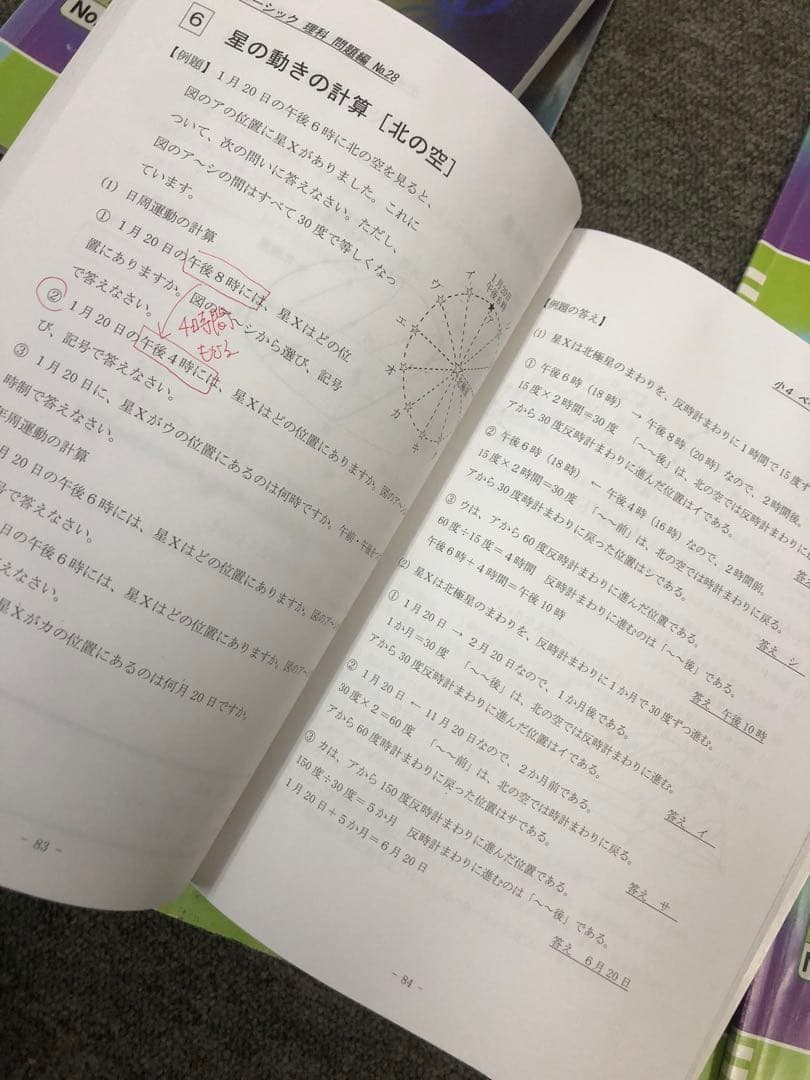 No.
ーシック 理科 問題編 No.28
6 星の動きの計算［北の空］
【例題】1月20日の午後6時に北の空を見ると、
図のアの位置に星Xがありました。これに
ついて、次の問いに答えなさい。ただし、
図のア〜シの間はすべて30度で等しくなっ
ています。
(1) 日周運動の計算
① 1月20日の午後8時には、星Xはどの位
置にありますか。図のア〜シから選び、記号
で答えなさい。
4時間
もどる
② 1月20日の午後4時には、星Xはどの位置にありますか。図のア〜
び、記号で答えなさい。
③ 1月20日に、星Xがウの位置にあるのは何時ですか。午前・午後
時制で答えなさい。
年周運動の計算
日の午後6時には、星Xはどの位置にありますか。図のア〜
号で答えなさい。
日の午後6時には、星Xはどの位置にありますか。図のア〜
えなさい。
星Xがカの位置にあるのは何月20日ですか。
1月20日
午後6時
ア
イ
ウ
エ
オ
カ
キ
- 83 -
小4 ベ
【例題の答え】
(1) 星Xは北極星のまわりを、反時計まわりに1時間で15度ず
① 午後6時（18時） → 午後8時（20時）なので、2時間後。
15度×2時間＝30度 「〜〜後」は、北の空では反時計まわりに
アから30度反時計まわりに進んだ位置はイである。
答え
② 午後6時（18時） ← 午後4時（16時）なので、2時間前。
15度×2時間＝30度 「〜〜前」は、北の空では時計まわりに戻る。
アから30度時計まわりに戻った位置はシである。
答え シ
③ ウは、アから60度反時計まわりに進んだ位置である。
60度÷15度＝4時間 反時計まわりに進むのは「〜〜後」である。
午後6時＋4時間＝午後10時
答え 午後10時
(2) 星Xは北極星のまわりを、反時計まわりに1か月で30度ずつ進む。
① 1月20日 → 2月20日なので、1か月後である。
1か月＝30度 「〜〜後」は、北の空では反時計まわりに進む。
アから30度反時計まわりに進んだ位置はイである。
答え イ
② 1月20日 ← 11月20日なので、2か月前である。
30度×2＝60度 「〜〜前」は、北の空では時計まわりに戻る。
アから60度時計まわりに戻った位置はサである。
答え サ
③ カは、アから150度反時計まわりに進んだ位置である。
150度÷30度＝5か月 反時計まわりに進むのは「〜〜後」である。
1月20日＋5か月＝6月20日
答え 6月20日
- 84 -